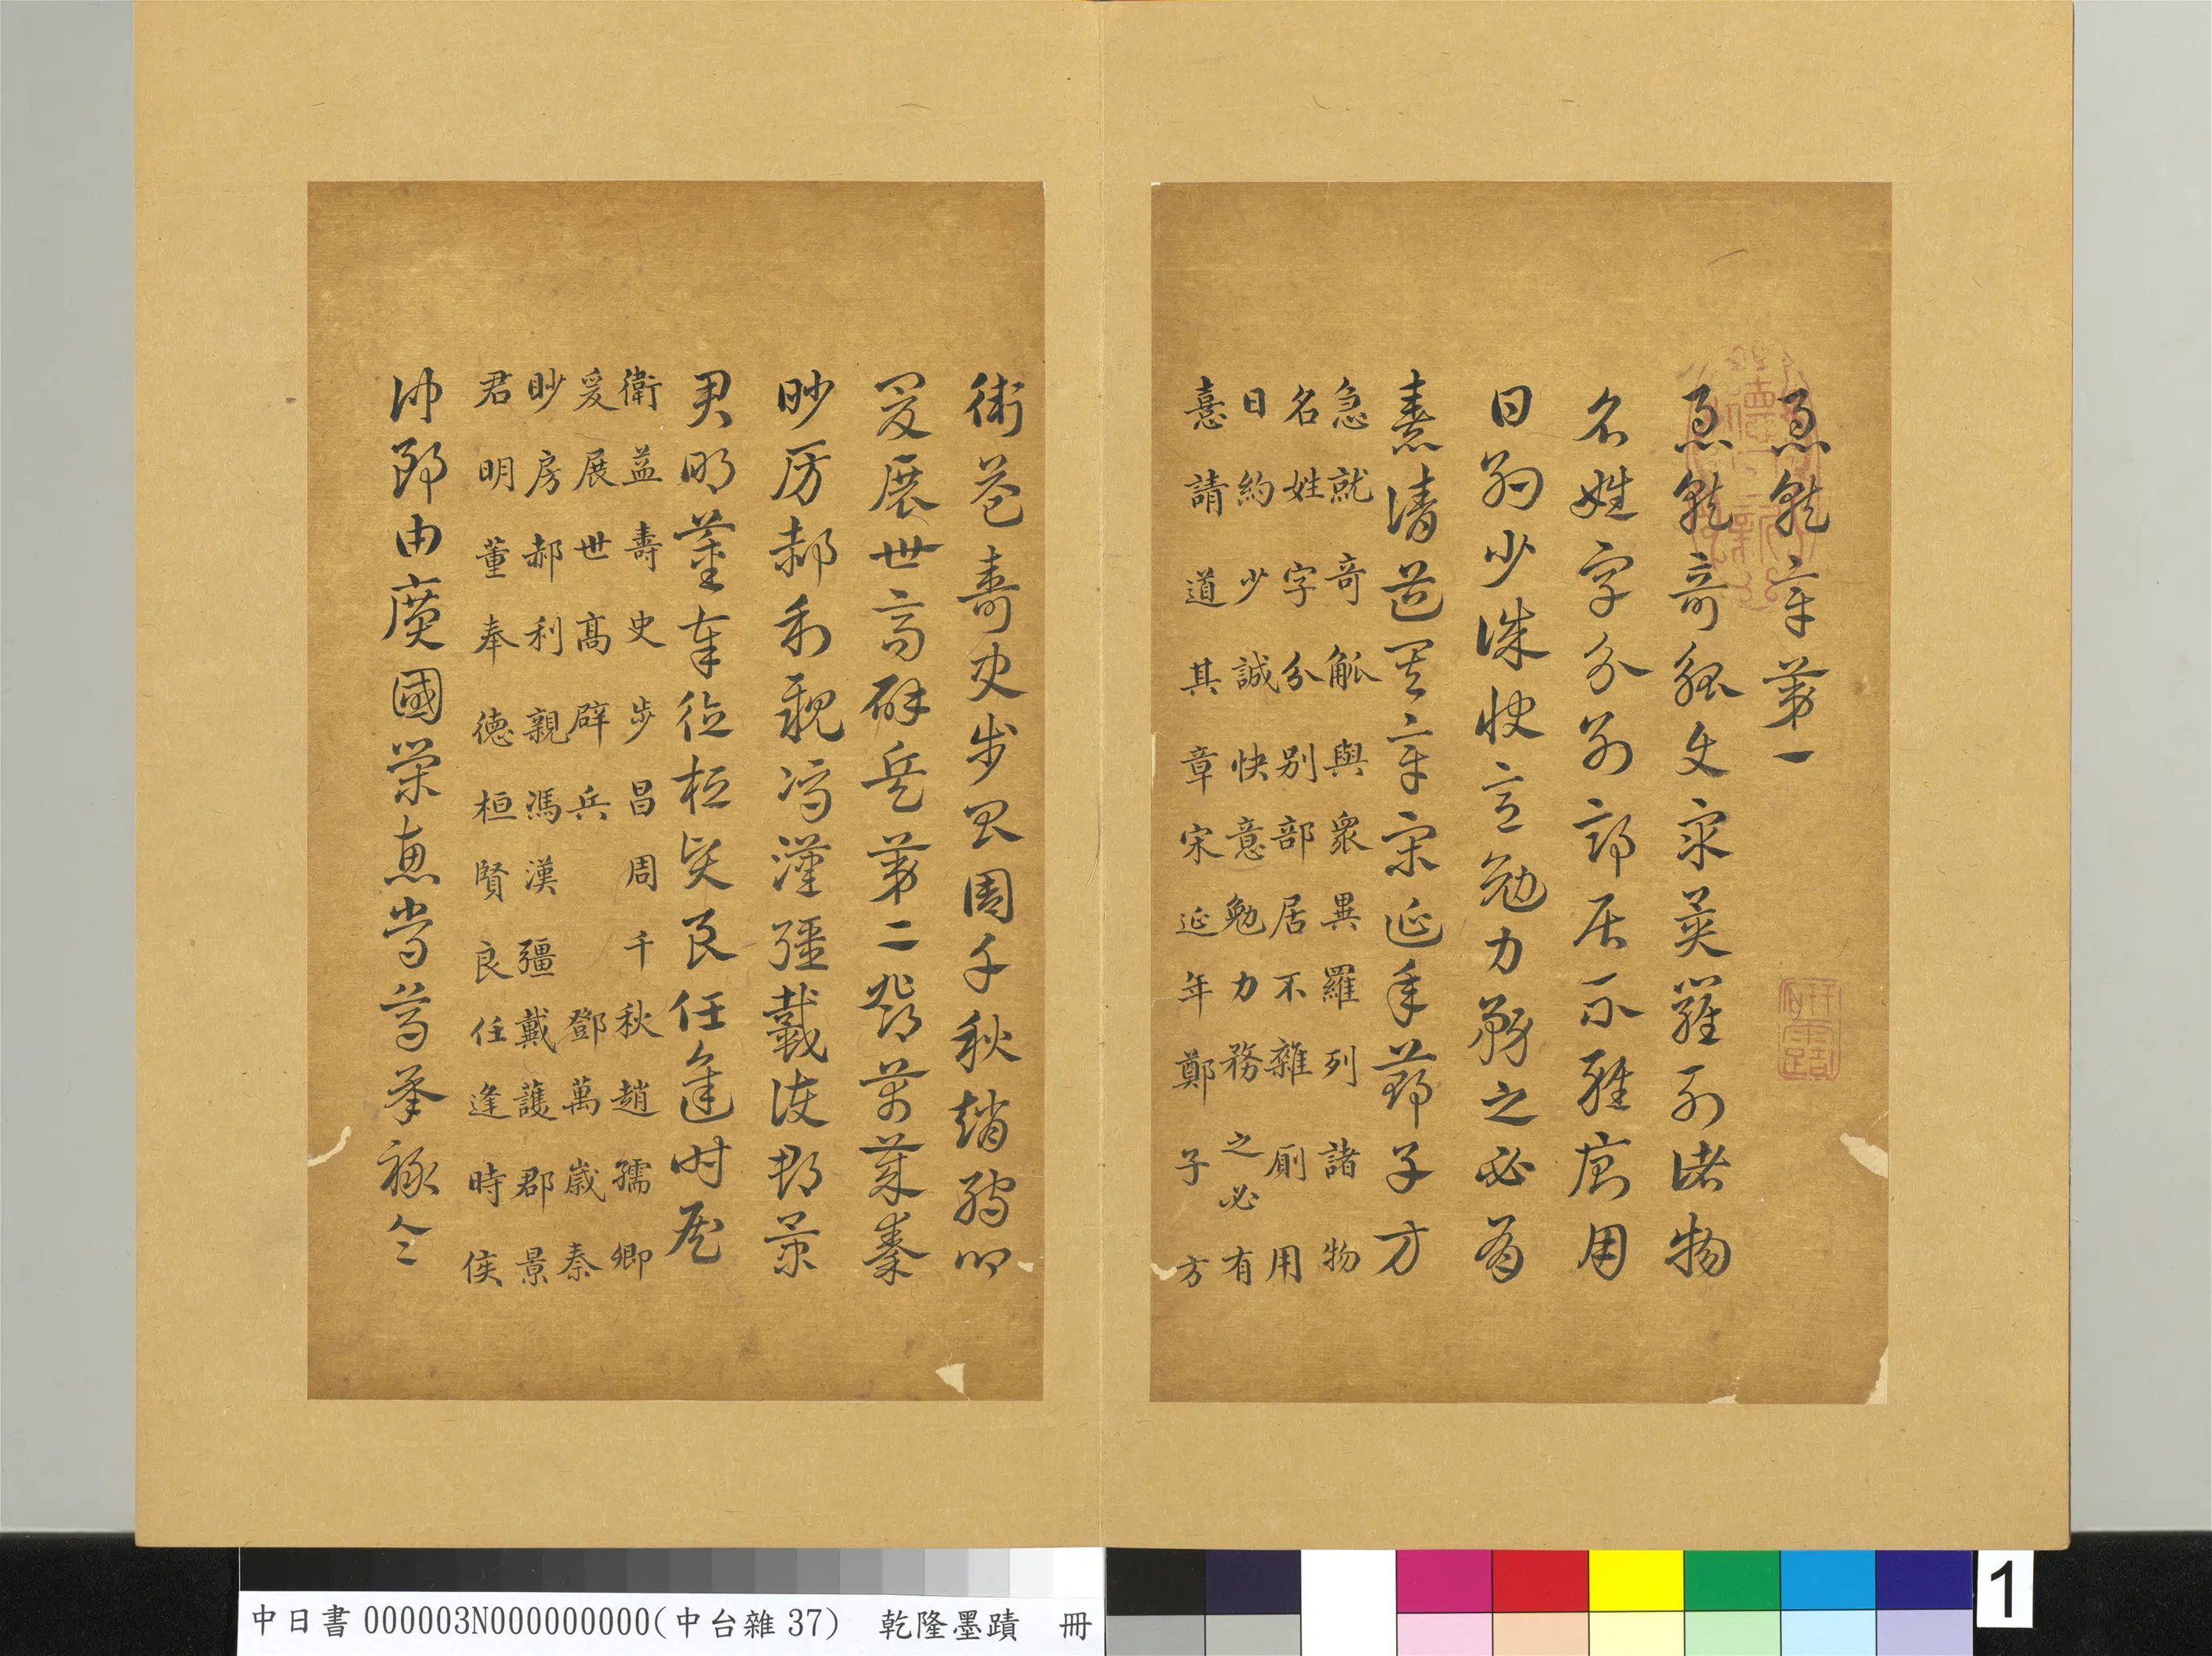 急就章第一
急就奇觚與眾異羅列諸物
名姓字分別部居不雜廁用
日約少誠快意勉力務之必有
憙請道其章宋延年鄭子方
急就奇觚與眾異羅列諸物
名姓字分別部居不雜廁用
日約少誠快意勉力務之必有
憙請道其章宋延年鄭子方
衛益壽史步昌周千秋趙孺卿
爰展世高辟兵第二鄧萬歲秦
眇房郝利親馮漢彊戴護郡景
君明董奉德桓賢良任逢時侯
衛益壽史步昌周千秋趙孺卿
爰展世高辟兵 鄧萬歲秦
眇房郝利親馮漢彊戴護郡景
君明董奉德桓賢良任逢時侯
仲郎由廣國榮惠常烏承祿令
中日書000003N000000000(中台雜37) 乾隆墨蹟 冊
1